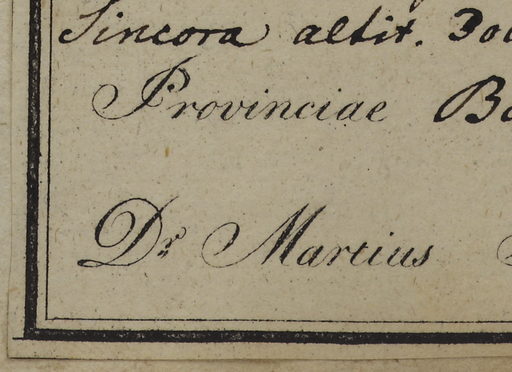 Sincora altit. 300
Provinciae Ba
Dr. Martius